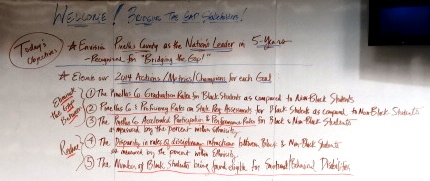 WELCOME! BRIDGING THE GAP STAKEHOLDERS!
Today's Objectives
★ Envision Pinellas County as the Nation's Leader in 5-Years
- Recognized for "Bridging the Gap!"
★ our 2014 Actions/Metrics/Champions for each Goal
Eliminate the Gap Between
① The Pinellas Co Graduation Rates for Black Students as compared to Non-Black Students
② Pinellas Co's Proficiency Rates on State Req Assessments for Black Students as compared to Non-Black Students
③ The Pinellas Co Accelerated Participation & Performance Rates for Black & Non-Black Students
as measured by the percent within Ethnicity
Reduce
④ The Disparity in rates of disciplinary infractions between Black & Non-Black Students
as measured by the percent within Ethnicity
⑤ The Number of Black Students being found eligible for Emotional/Behavioral Disabilities